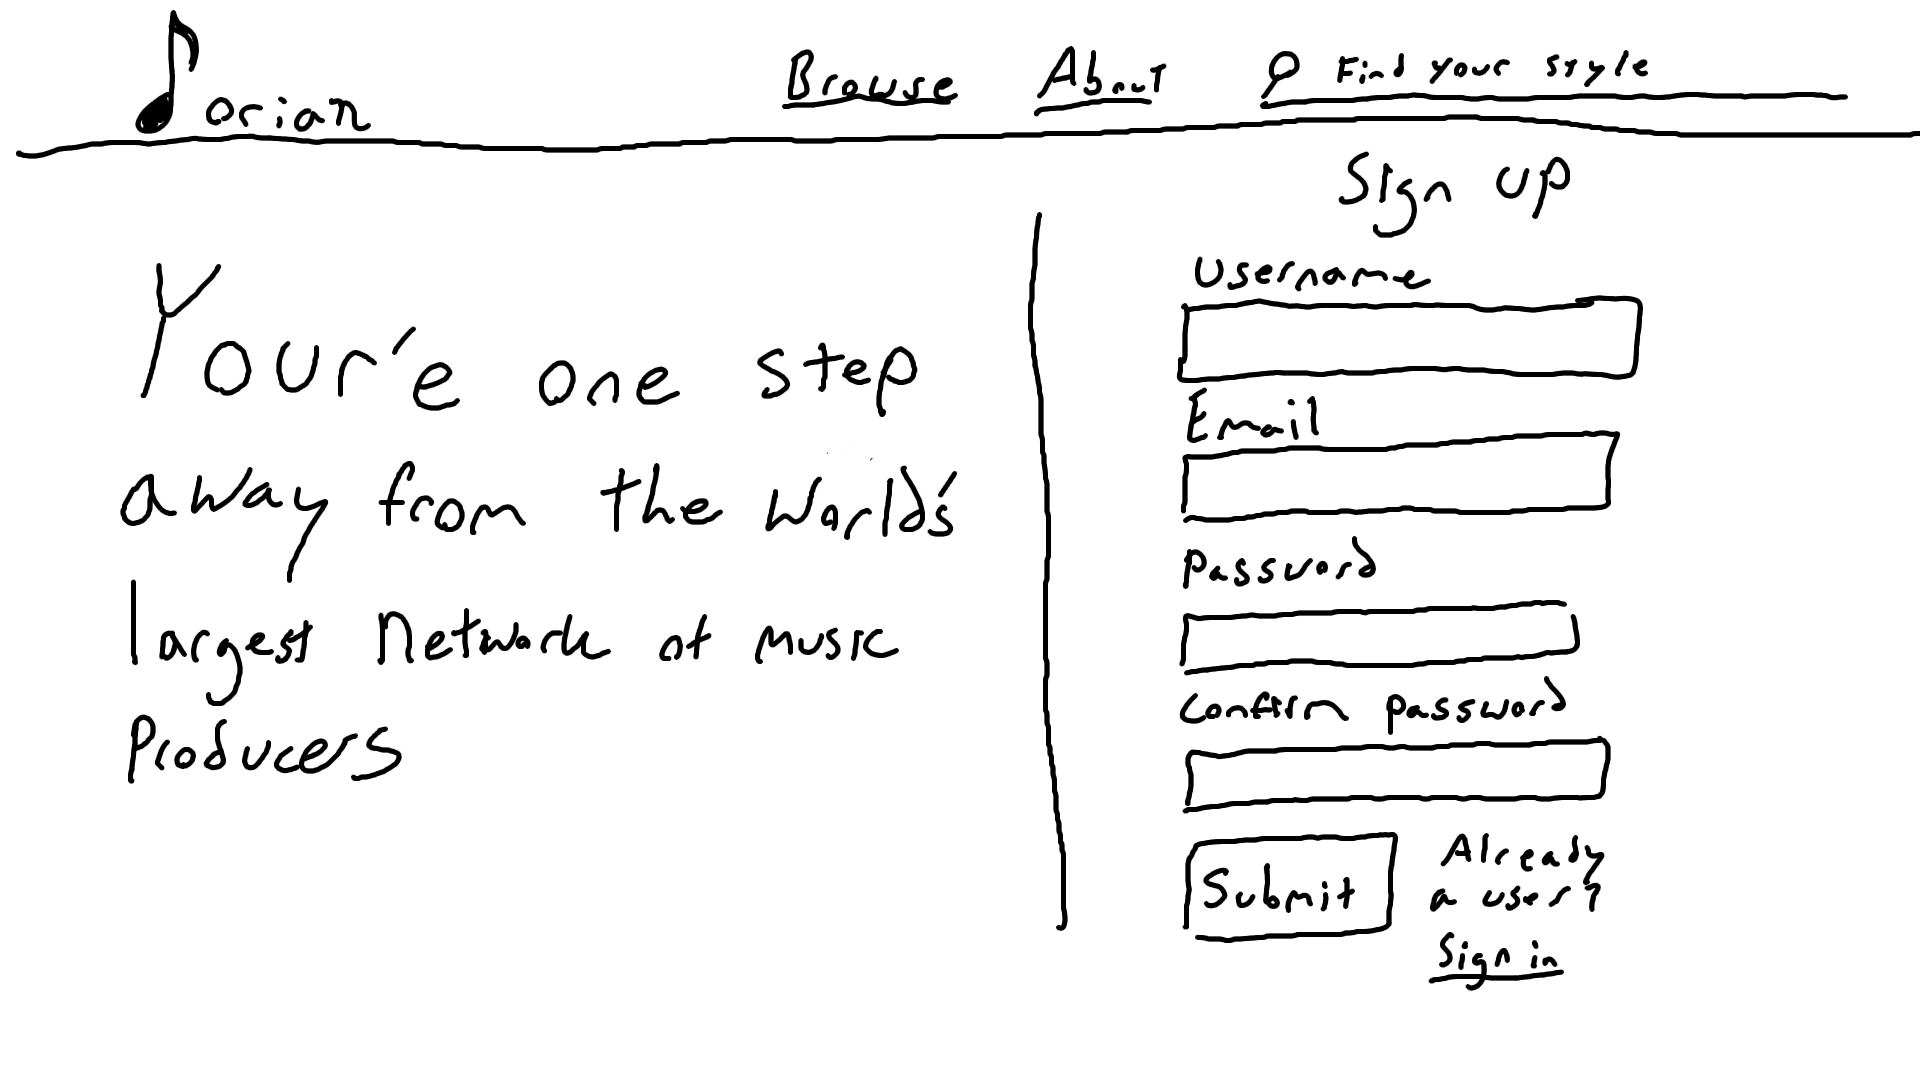 orian
Browse About Find your style
Sign up
Your'e one step
away from the world's
largest network of music
Producers
Username
Email
Password
Confirm password
Submit
Already
a user?
Sign in